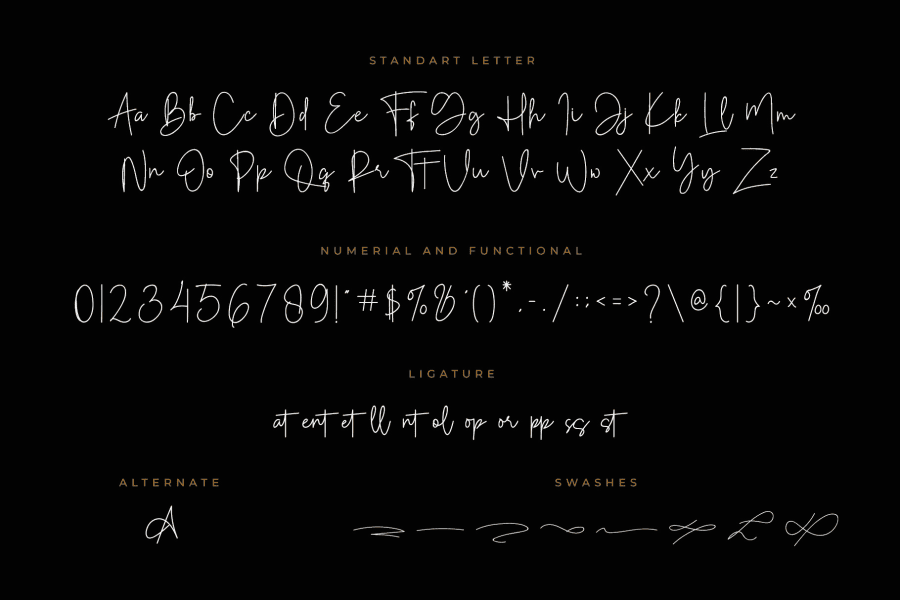 STANDART LETTER
Aa Bb Cc Dd Ee Ff Gg Hh Ii Jj Kk Ll Mm
Nn Oo Pp Qq Rr Tt Uu Vv Ww Xx Yy Zz
NUMERIAL AND FUNCTIONAL
0123456789!"#$%&'()*,-./:;<=>?\@{|}~×‰
LIGATURE
at ent et ll nt ol op or pp ss st
ALTERNATE
A
SWASHES